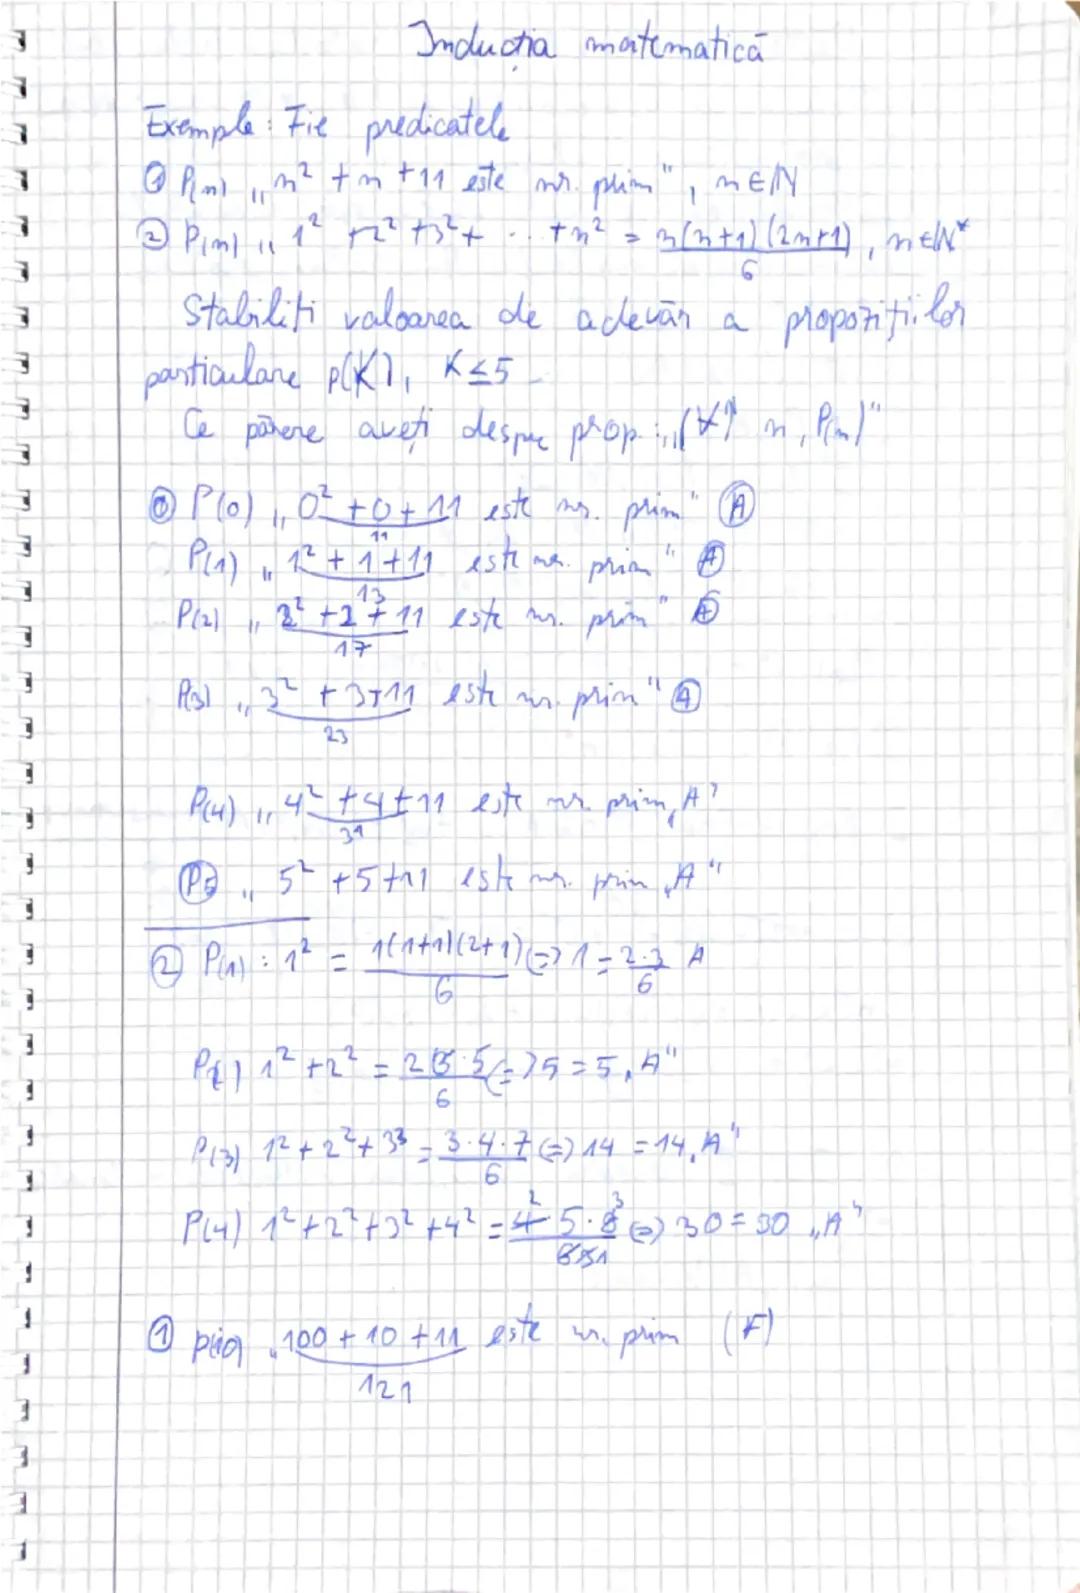 Inducția matematică
Exemple: Fie predicatele
① P(n) „n² + n + 11 este nr. prim", n∈ℕ
② P(n) „1² + 2² + 3² + ... + n² = n(n+1)(2n+1)/6, n∈ℕ*
Stabiliți valoarea de adevăr a propozițiilor
particulare p(K), K≤5
Ce părere aveți despre prop.: „(∀) n, P(n)"
① P(0) „0² + 0 + 11 este nr. prim" Ⓐ
11
P(1) „1² + 1 + 11 este nr. prim" Ⓐ
13
P(2) „2² + 2 + 11 este nr. prim" Ⓐ
17
P(3) „3² + 3 + 11 este nr. prim" Ⓐ
23
P(4) „4² + 4 + 11 este nr. prim „A"
31
P5 „5² + 5 + 11 este nr. prim „A"
② P(1) : 1² = 1(1+1)(2+1)/6 (=) 1 = 2·3/6 A
P(2) 1² + 2² = 2·3·5/6 (=) 5 = 5 „A"
P(3) 1² + 2² + 3² = 3·4·7/6 (=) 14 = 14 „A"
P(4) 1² + 2² + 3² + 4² = 4·5·9/6 (=) 30 = 30 „A"
① p(10) „100 + 10 + 11 este nr. prim (F)
121